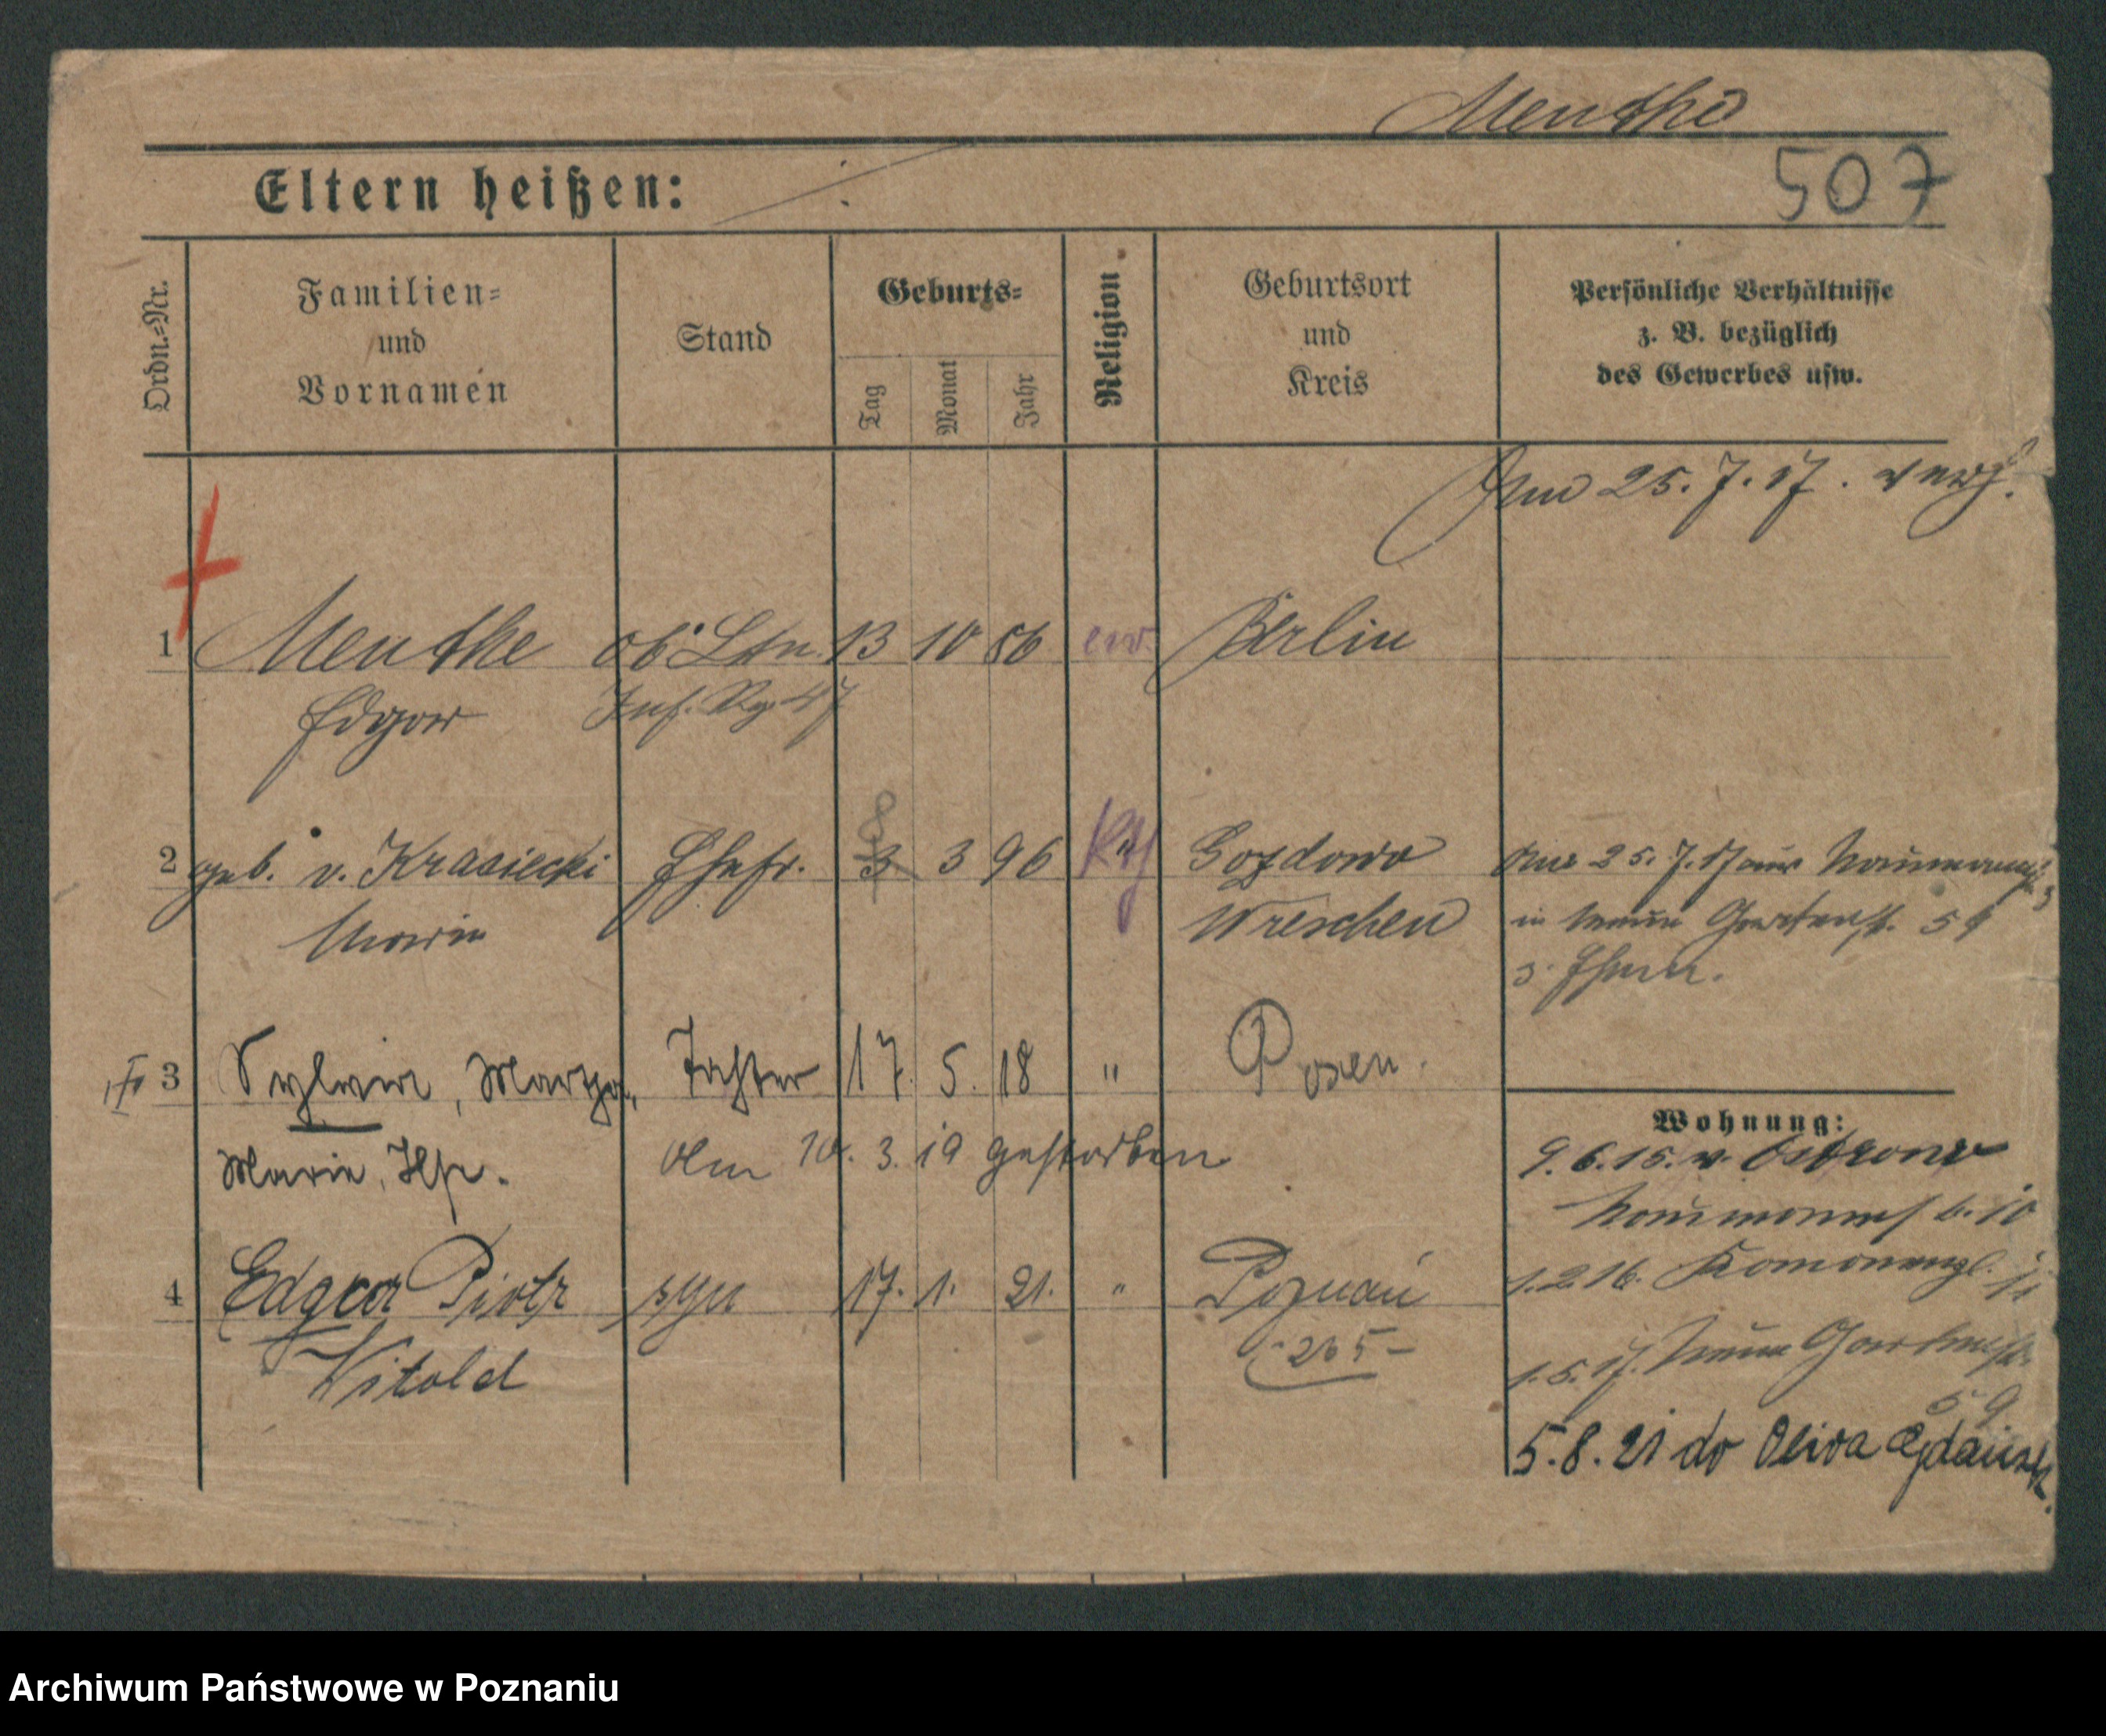 Menthe
Eltern heißen:
507
Ordn.=Nr.
Familien=
und
Vornamen
Stand
Geburts=
Tag
Monat
Jahr
Religion
Geburtsort
und
Kreis
Persönliche Verhältnisse
z. B. bezüglich
des Gewerbes usw.
Am 25.7.17. verh.
1 Menthe ob. Ltn. 13 10 86 ev. Berlin
Edgar Inf. Rg 47
8
2 geb. v. Krasiecki Ehefr. 3 3 96 Kth Gozdowo
Marie Wreschen
25.7.17 aus Naumannstr.
in Gartenstr. 59
z. Ehem.
3 Sylvia, Marga, Tochter 17. 5. 18 " Posen.
Marie, Ilse. Am 10. 3. 19 gestorben
4 Edgar Piotr syn 17. 1. 21. " Poznań
Witold 265
Wohnung:
9.6.15. v. Ostrowo
Naumannst 10
1.2.16.
1.5.17. Gartenstr.
59
5.8.21 do Oliva Gdańsk.
Archiwum Państwowe w Poznaniu